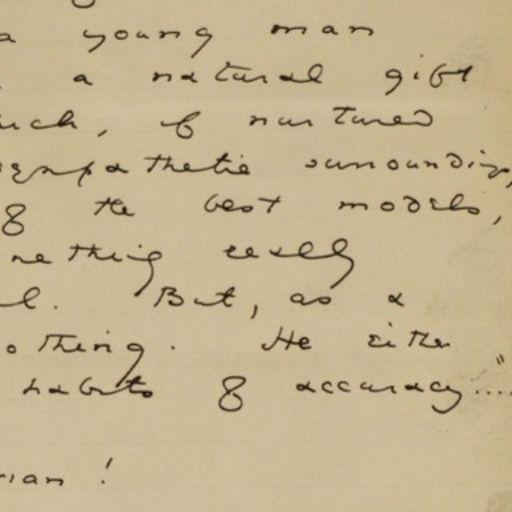 a young man
a natural gift
uch, if nurtured
sympathetic surroundings,
of the best models,
mething really
l. But, as a
othing. He either
habits of accuracy...."
rian!